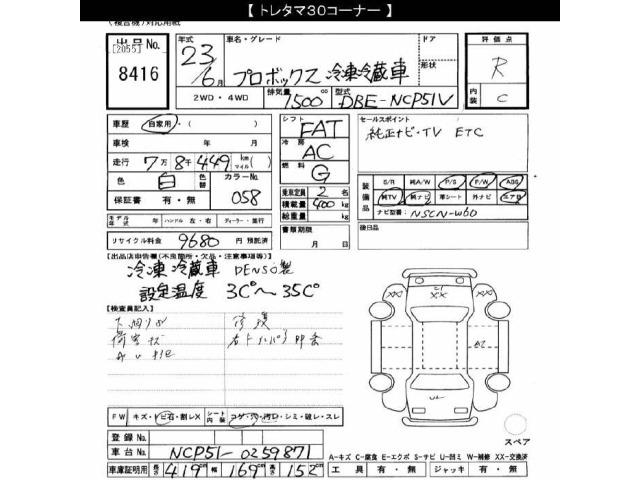 【 トレタマ30コーナー 】
(複合機)対応用紙
出品No. [2055] 8416
年式 23/6月
車名・グレード プロボックス 冷凍冷蔵車
ドア 形状
評価点 R
内装 C
2WD・4WD 排気量 1500 cc 型式 DBE-NCP51V
車歴 自家用・( )
車検 年 月
走行 7万8千449 km(マイル)
色 白 色替 カラーNo. 058
保証書 有・無
シフト FAT
冷房 AC
燃料 G
乗車定員 2名
積載量 400 kg
総重量 kg
セールスポイント
純正ナビ・TV ETC
装備品 S/R 純A/W P/S P/W ABS
純TV 純ナビ 革シート 外ナビ エアB
ナビ型番( NSCN-W60
モデル年式 年 ハンドル 左・右 ディーラー・並行
書類期限 月 日
後日品
リサイクル料金 9680円 預託済
【出品店申告欄(不良箇所・欠品・注意事項等)】
冷凍冷蔵車 DENSO製
設定温度 3C°~35C°
【検査員記入】
下廻りサ 修復
荷室
FW キズ・トビ石・割レX シート内装 コゲ・穴・汚レ・シミ・破レ・スレ
登録No.
車台No. NCP51-0259871
車庫証明用 長さ 419cm 幅 169cm 高さ 152cm
スペア
A-キズ C-腐食 E-エクボ S-サビ U-凹ミ W-補修 XX-交換済
工具 有・無 ジャッキ 有・無